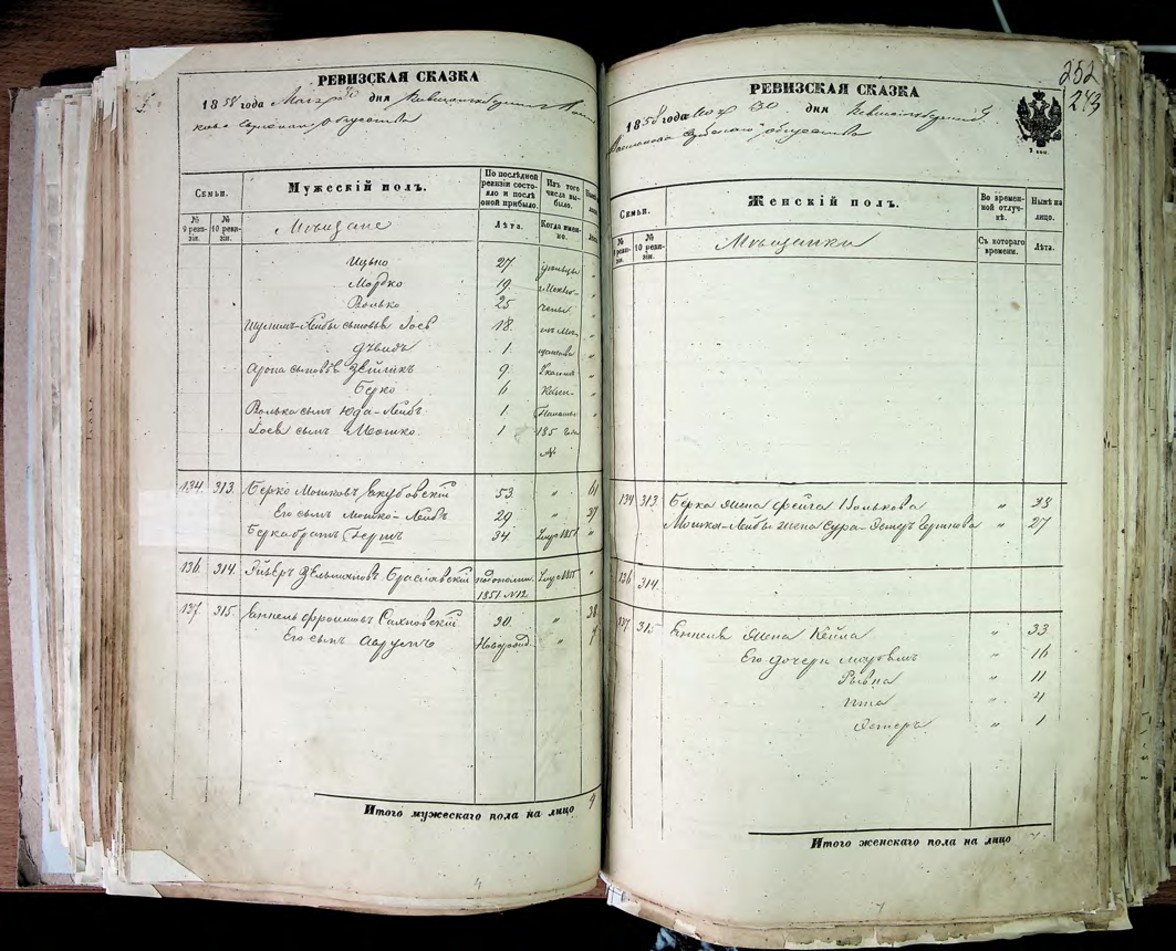 РЕВИЗСКАЯ СКАЗКА
1858 года дня
Семьи.
Мужескій полъ.
По послѣдней ревизіи состояло и послѣ оной прибыло.
Изъ того числа выбыло.
№ 9 ревизіи.
№ 10 ревизіи.
Мѣщане
Лѣта.
Когда именно.
Ицько 27
Мордко 19
Волько 25
Шулимъ-Лейбы сыновья Іосъ 18
Дѣвидъ 1
Арона сыновья Зейликъ 9
Берко 6
Волька сынъ Юда-Лейбъ 1
Іося сынъ Мошко 1
134 313 Берко Мошковъ Якубовскій 53 " 61
Его сынъ Мошко-Лейбъ 29 " 37
Берка братъ Гершъ 34
136 314 Зельмановъ Браславскій 1851 №12
137 315 Фроимовъ Сахновскій 30 " 38
Его сынъ Аврумъ Новорожд. " 7
Итого мужескаго пола на лицо 4
4
252
243
РЕВИЗСКАЯ СКАЗКА
1858 года 30 дня
общества
Семьи.
Женскій полъ.
Во временной отлучкѣ.
Нынѣ на лицо.
№ 9 ревизіи.
№ 10 ревизіи.
Мѣщанки
Съ котораго времени.
Лѣта.
134 313 Берка жена Фейга Волькова " 33
Мошка-Лейбы жена Сура-Эстеръ " 27
136 314
137 315 жена Кейла " 33
Его дочери " 16
Рывка " 11
Ита " 4
Эстеръ " 1
Итого женскаго пола на лицо 7
7